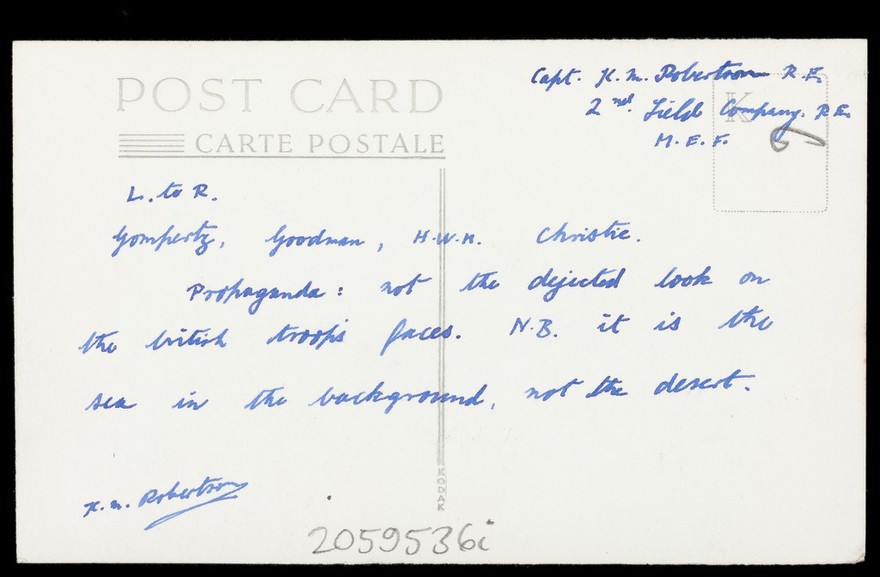 Capt. K. M. Robertson R.E.
2nd. Field Company. R.E.
M. E. F.
POST CARD
CARTE POSTALE
K
L. to R.
Gompertz, Goodman, H.W.M. Christie.
Propaganda: not the dejected look on
the british troops faces. N.B. it is the
sea in the background, not the desert.
K. M. Robertson
KODAK
2059536i